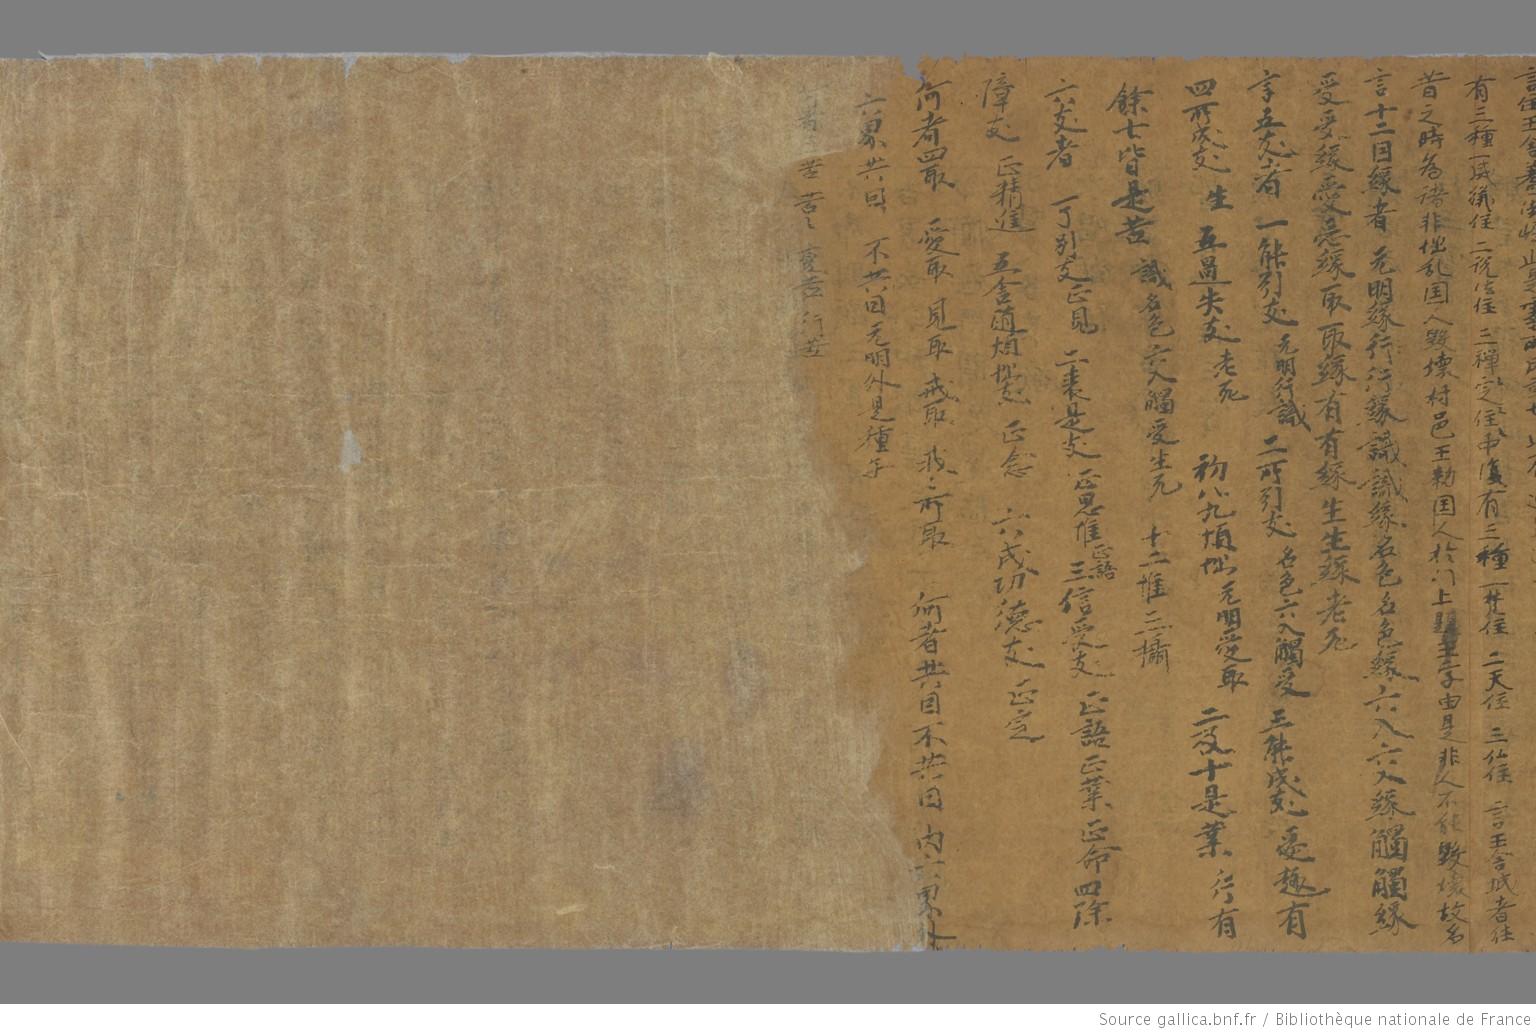 有三種 一威儀住 二說法住 三禪定住 復有三種 一梵住 二天住 三仏住 言王舍城者 住
昔之時為諸非怪乱国人毀壞村邑王勑国人於门上題王字由是非人不能毀壞故名
言十二因緣者 无明緣行行緣識識緣名色名色緣六入六入緣觸觸緣
受受緣愛愛緣取取緣有有緣生生緣老死
言五支者 一能引支 无明行識 二所引支 名色六入觸受 三能成支 愛趣有
四所成支 生 五過失支 老死 初八九煩惱 无明愛取 二及十是業 行有
餘七皆是苦 識名色六入觸受生死 十二唯三攝
六支者 一了別支 正見 二表是支 正思惟正語 三信受支 正語正業正命 四除
障支 正精進 五念隨煩惱支 正念 六成功德支 正定
何者四取 愛取 見取 戒取 我々所取 何者共因不共因 内六界外
六界共因 不共因 无明外是種子
苦苦々 變苦 行苦
Source gallica.bnf.fr / Bibliothèque nationale de France